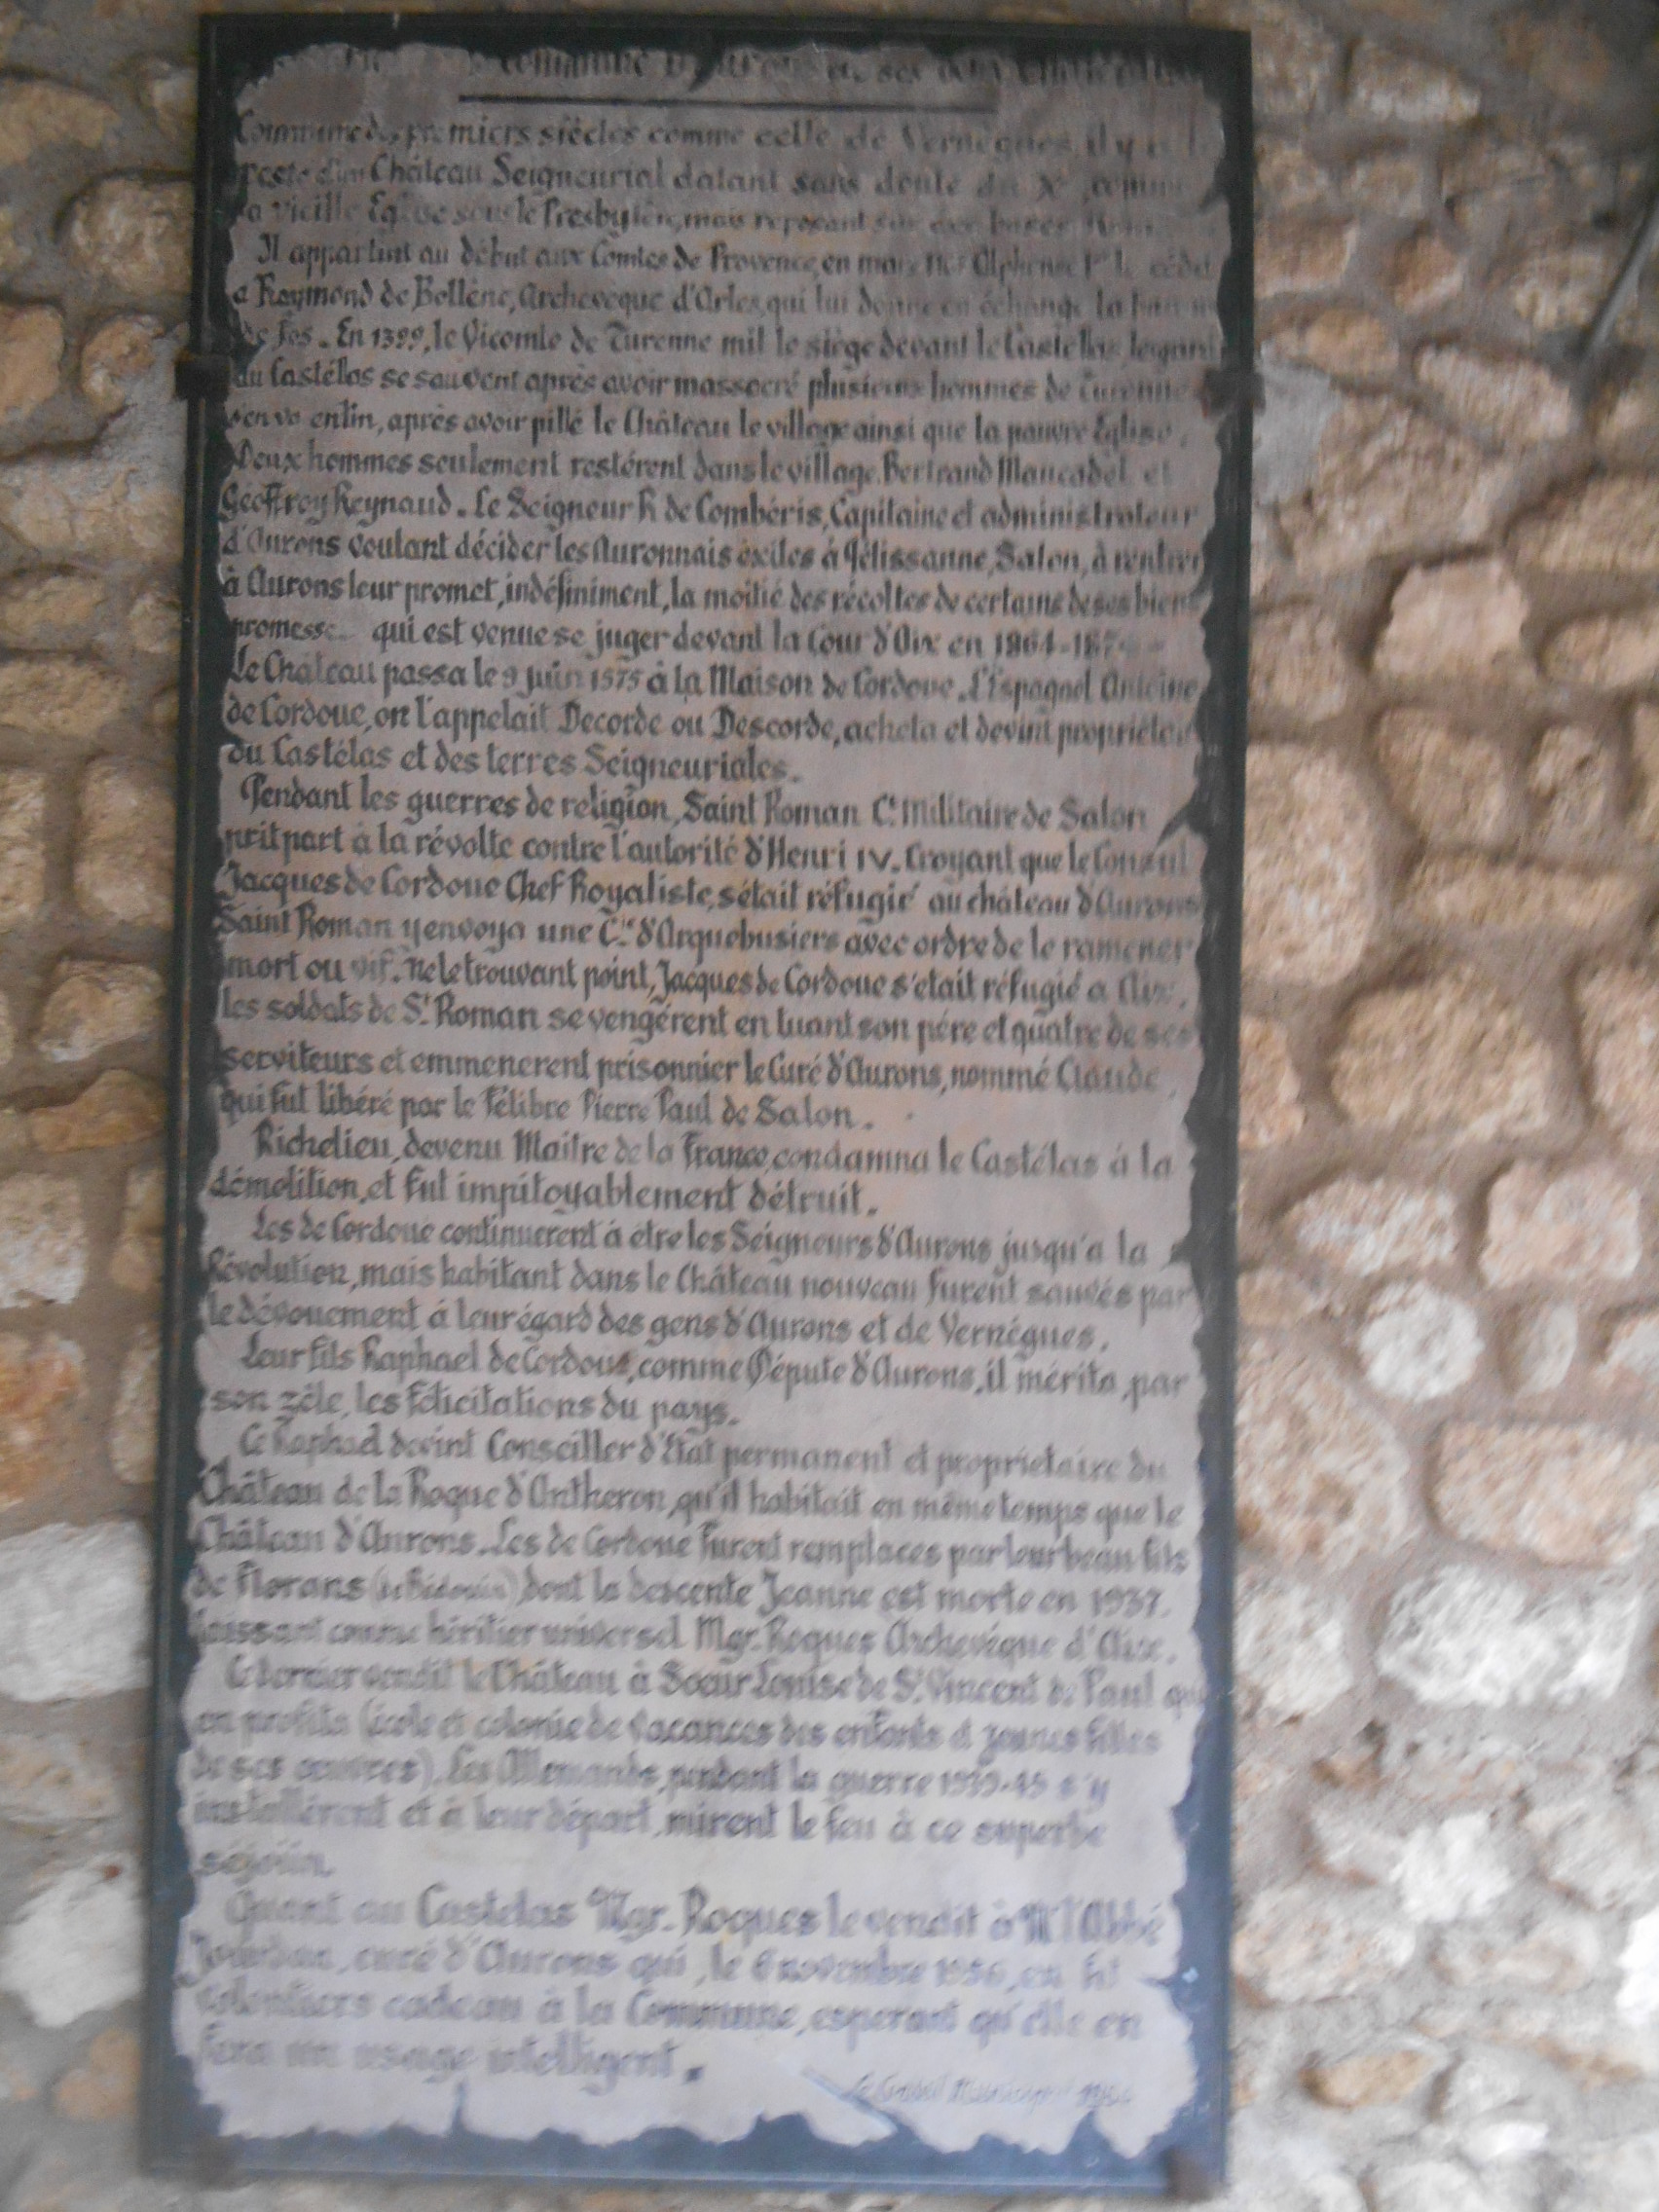 commune d'Aurons et ses deux
Commune des premiers siècles comme celle de Vernègues, il y a le
reste d'un Château Seigneurial datant sans doute du X°, comme
la vieille Eglise sous le Presbytère, mais reposant sur des bases
Il appartint au début aux Comtes de Provence, en mars Alphonse 1er le céda
a Raymond de Bollène, Archevêque d'Arles, qui lui donne en échange la
de Fos. En 1399, le Vicomte de Turenne mit le siège devant le Castellas,
du Castéllas se sauvent après avoir massacré plusieurs hommes de Turenne
s'en va enfin, après avoir pillé le Château le village ainsi que la pauvre Eglise.
Deux hommes seulement restèrent dans le village, Bertrand Maucadel et
Géoffroy Reynaud. Le Seigneur R de Combéris, Capitaine et administrateur
d'Aurons voulant décider les Auronnais éxilés à Pélissanne, Salon, à rentrer
à Aurons leur promet, indéfiniment, la moitié des récoltes de certains de ses biens
promesse qui est venue se juger devant la Cour d'Aix en 1864-
Le Château passa le 9 juin 1575 à la Maison de Cordoue. L'Espagnol Antoine
de Cordoue, on l'appelait Decorde ou Descorde, acheta et devint propriétaire
du Castélas et des terres Seigneuriales.
Pendant les guerres de religion, Saint Roman Ct Militaire de Salon
prit part à la révolte contre l'autorité d'Henri IV. Croyant que le Consul
Jacques de Cordoue Chef Royaliste, s'était réfugié au château d'Aurons
Saint Roman y envoya une Cie d'Arquebusiers avec ordre de le ramener
mort ou vif. Ne le trouvant point, Jacques de Cordoue s'était réfugié a Aix,
les soldats de St Roman se vengérent en tuant son père et quatre de ses
serviteurs et emmenerent prisonnier le Curé d'Aurons, nommé Claude
qui fut libéré par le Félibre Pierre Paul de Salon.
Richelieu, devenu Maitre de la France, condamna le Castélas à la
démolition, et fut impitoyablement détruit.
Les de Cordoue continuerent à être les Seigneurs d'Aurons jusqu'a la
Révolution, mais habitant dans le Château nouveau furent sauvés par
le dévouement à leur égard des gens d'Aurons et de Vernègues.
Leur fils Raphael de Cordoue, comme Député d'Aurons, il mérita, par
son zèle, les félicitations du pays.
Ce Raphael devint Conseiller d'Etat permanent et propriétaire du
Château de la Roque d'Antheron, qu'il habitait en même temps que le
Château d'Aurons. Les de Cordoue furent remplacés par leur beau-fils
de Florans dont la descente Jeanne est morte en 1937.
laissant comme héritier universel Mgr. Roques Archevêque d'Aix.
Ce dernier vendit le Château à Soeur Louise de St Vincent de Paul qui
en profita (école et colonie de vacances des enfants et jeunes filles
de ses oeuvres). Les Allemands, pendant la guerre 1939-45 s'y
installérent et à leur départ, mirent le feu à ce superbe
séjour.
Quant au Castelas Mgr. Roques le vendit à Mr l'Abbé
Jourdan, curé d'Aurons qui, le 6 novembre 1956, en fit
volontiers cadeau à la Commune, esperant qu'elle en
fera un usage intelligent.
Le Conseil Municipal